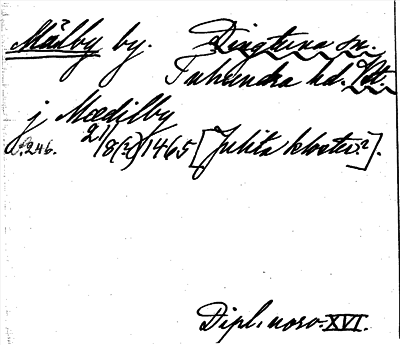 Mälby by. Dingtuna sn.
Tuhundra hd. Vstm.
j Mædilby
s. 246. 21/8(?) 1465 [Julita kloster?].
Dipl. norv. XVI.